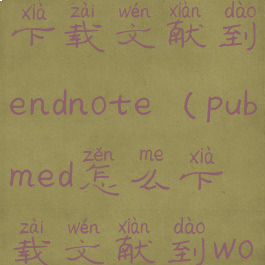 xià zǎi wén xiàn dào
下载文献到
endnote（pub
zěn me xià
med怎么下
zǎi wén xiàn dào
载文献到wo